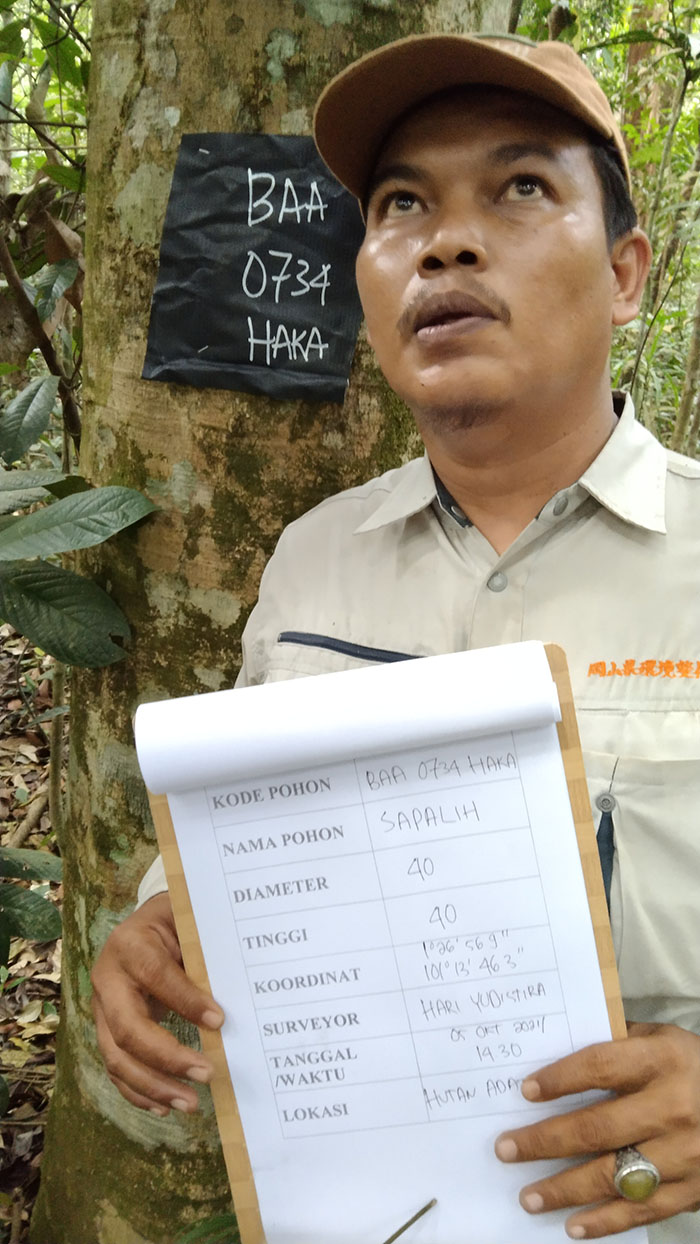 BAA
0734
HAKA
岡山県環境整
KODE POHON BAA 0734 HAKA
NAMA POHON SAPALIH
DIAMETER 40
TINGGI 40
KOORDINAT 1°26' 56.9"
101°13' 46.3"
SURVEYOR HARI YUDISTIRA
TANGGAL 05 OKT 2021/
/WAKTU 14.30
LOKASI HUTAN ADA